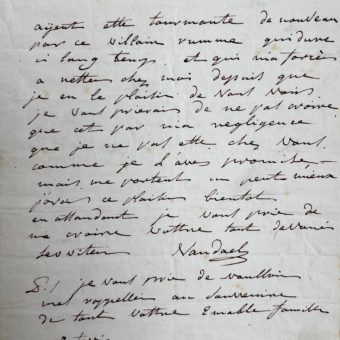 ayent ette tourmante de nouveau
par ce villain rumme qui dure
si lang temp. et qui m'a forcé
a rester chez moi depuis que
je eu le plaisir de vous voir.
je vous prierais de ne pas croire
que cet par ma negligence
que je ne pas ette chez vous
comme je l'aves promise,
mais me portent un peut mieux
j'orais ce plaisir bientot
en attandant je vous prie de
me croire vottre tout devoués
serviteur Vandael
P.S. je vous prie de voulloir
me rappeller au souvenire
de tout vottre Emable famille